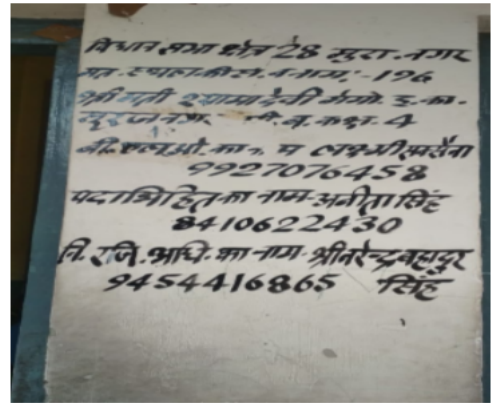 विधान सभा क्षेत्र 28 मुरा. नगर
मत. स्थल की सं. व नाम:- 196
श्री मती श्यामा देवी मेमो. इ. का.
सूरज नगर क. कक्ष. 4
बी. एल. ओ. का लक्ष्मी सक्सैना
9927076458
पदाभिहित का नाम- अनीता सिंह
8410622430
नि. रजि. अधि. का नाम- श्री नरेन्द्र बहादुर
9454416865 सिंह